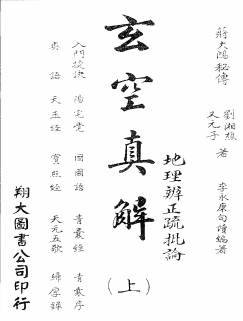 蔣大鴻秘傳
劉湘㷫 著
又元子
李永原句讀編著
地理辨正疏批論
玄空真解
(上)
入門捷訣 陽宅覺 國國語 青囊經 青囊序
奧語 天玉經 寶照經 天元五歌 歸厚錄
翔大圖書公司印行